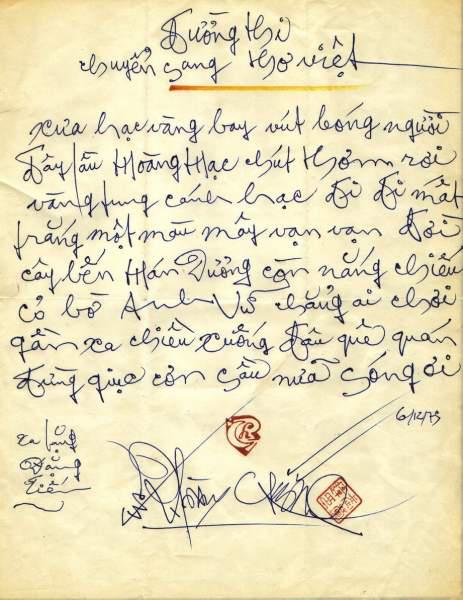 Đường thi
chuyển sang thơ việt
xưa hạc vàng bay vút bóng người
Đây lầu Hoàng Hạc chút thơm rơi
vàng tung cánh hạc đi đi mất
trắng một màu mây vạn vạn đời
cây bến Hán Dương còn nắng chiếu
cỏ bờ Anh Vũ chẳng ai chơi
gần xa chiều xuống đâu quê quán
đừng giục cơn sầu nữa sóng ơi
6/12/73
xa tặng
Đặng
Tiến